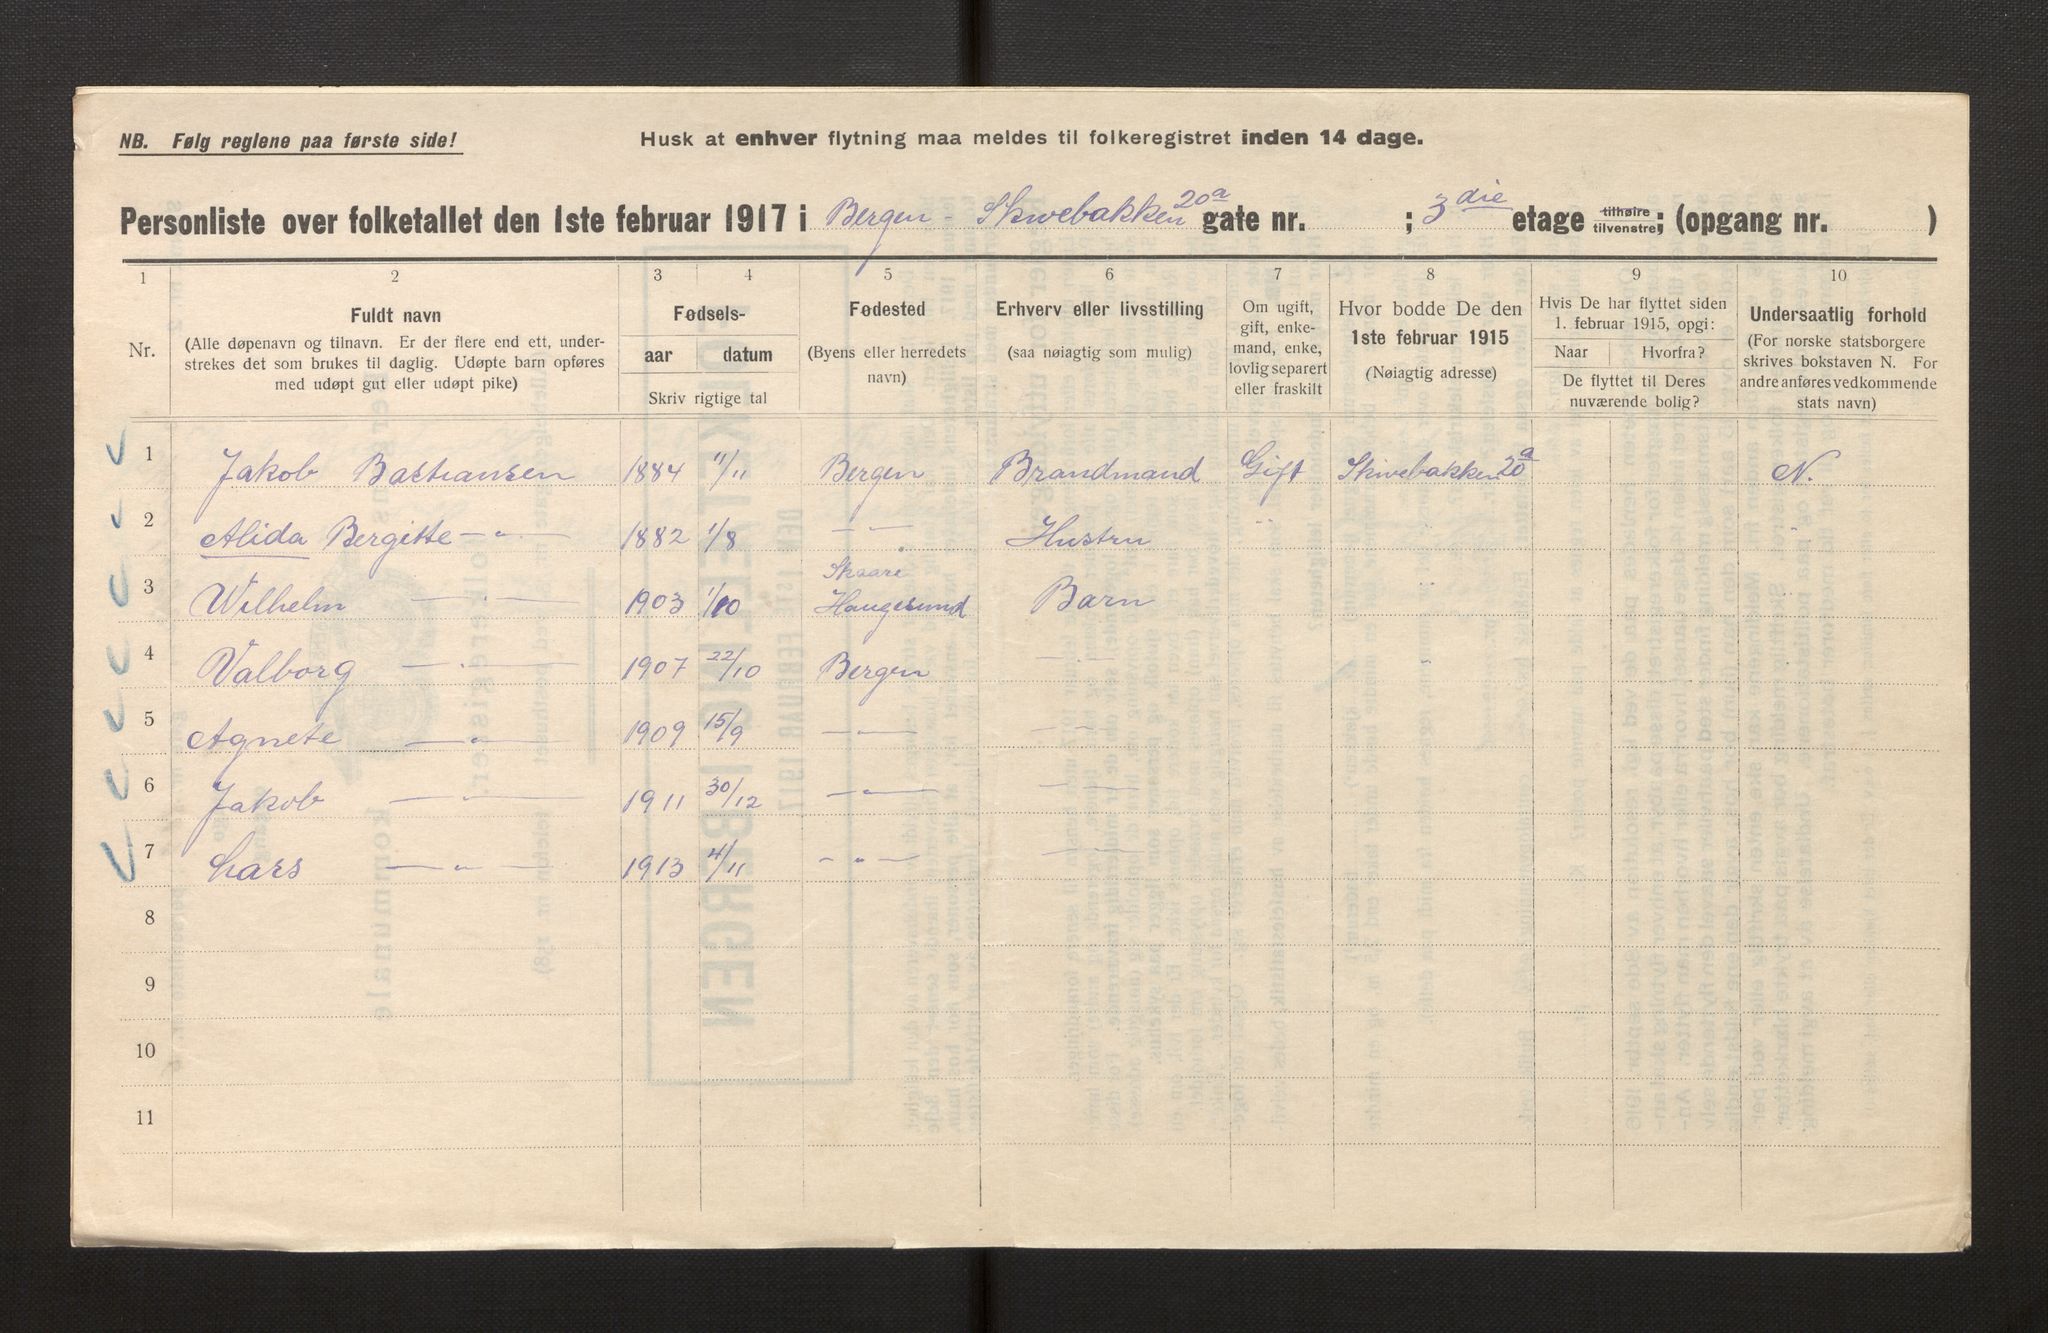 NB. Følg reglene paa første side!
Husk at enhver flytning maa meldes til folkeregistret inden 14 dage.
Personliste over folketallet den 1ste februar 1917 i Bergen - Skivebakken 20a gate nr. ; 3die etage tilhøire tilvenstre; (opgang nr. )
1 2 3 4 5 6 7 8 9 10
Nr.
Fuldt navn
(Alle døpenavn og tilnavn. Er der flere end ett, under-
strekes det som brukes til daglig. Udøpte barn opføres
med udøpt gut eller udøpt pike)
Fødsels-
aar datum
Skriv rigtige tal
Fødested
(Byens eller herredets
navn)
Erhverv eller livsstilling
(saa nøiagtig som mulig)
Om ugift,
gift, enke-
mand, enke,
lovlig separert
eller fraskilt
Hvor bodde De den
1ste februar 1915
(Nøiagtig adresse)
Hvis De har flyttet siden
1. februar 1915, opgi:
Naar Hvorfra?
De flyttet til Deres
nuværende bolig?
Undersaatlig forhold
(For norske statsborgere
skrives bokstaven N. For
andre anføres vedkommende
stats navn)
1 Jakob Bastiansen 1884 11/11 Bergen Brandmand Gift Skivebakken 20a N.
2 Alida Bergitte —„— 1882 1/8 —„— Hustru „ „ „
3 Wilhelm —„— 1903 1/10 Skaare Haugesund Barn „
4 Valborg —„— 1907 22/10 Bergen —„— „
5 Agnete —„— 1909 15/9 —„— —„—
6 Jakob —„— 1911 30/12 —„— —„—
7 Lars —„— 1913 4/11 —„— —„—
8
9
10
11